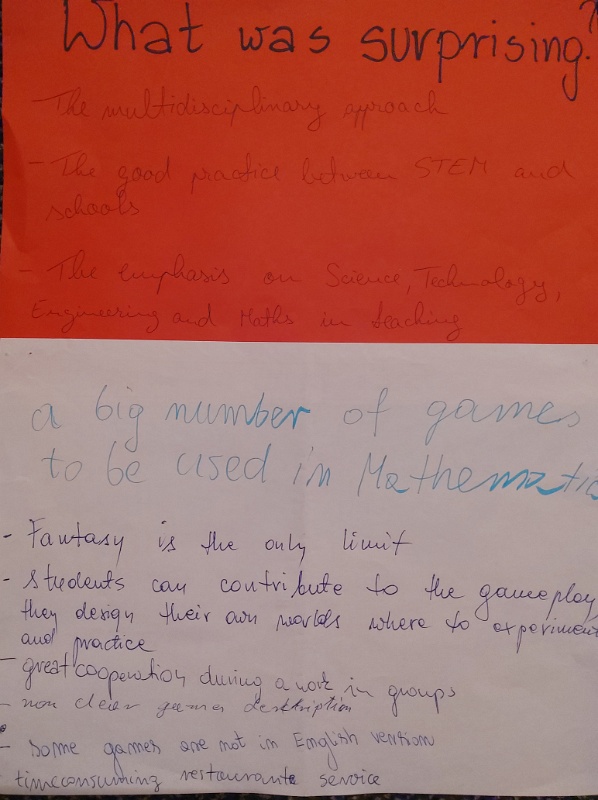 What was surprising?
- The multidisciplinary approach
- The good practice between STEM and
schools
- The emphasis on Science, Technology,
Engineering and Maths in teaching
a big number of games
to be used in Mathematic
- Fantasy is the only limit
- students can contribute to the gameplay,
they design their own worlds where to experiment
and practice
- great cooperation during a work in groups
- non clear games deskription
- some games are not in English version
timeconsuming restaurante service